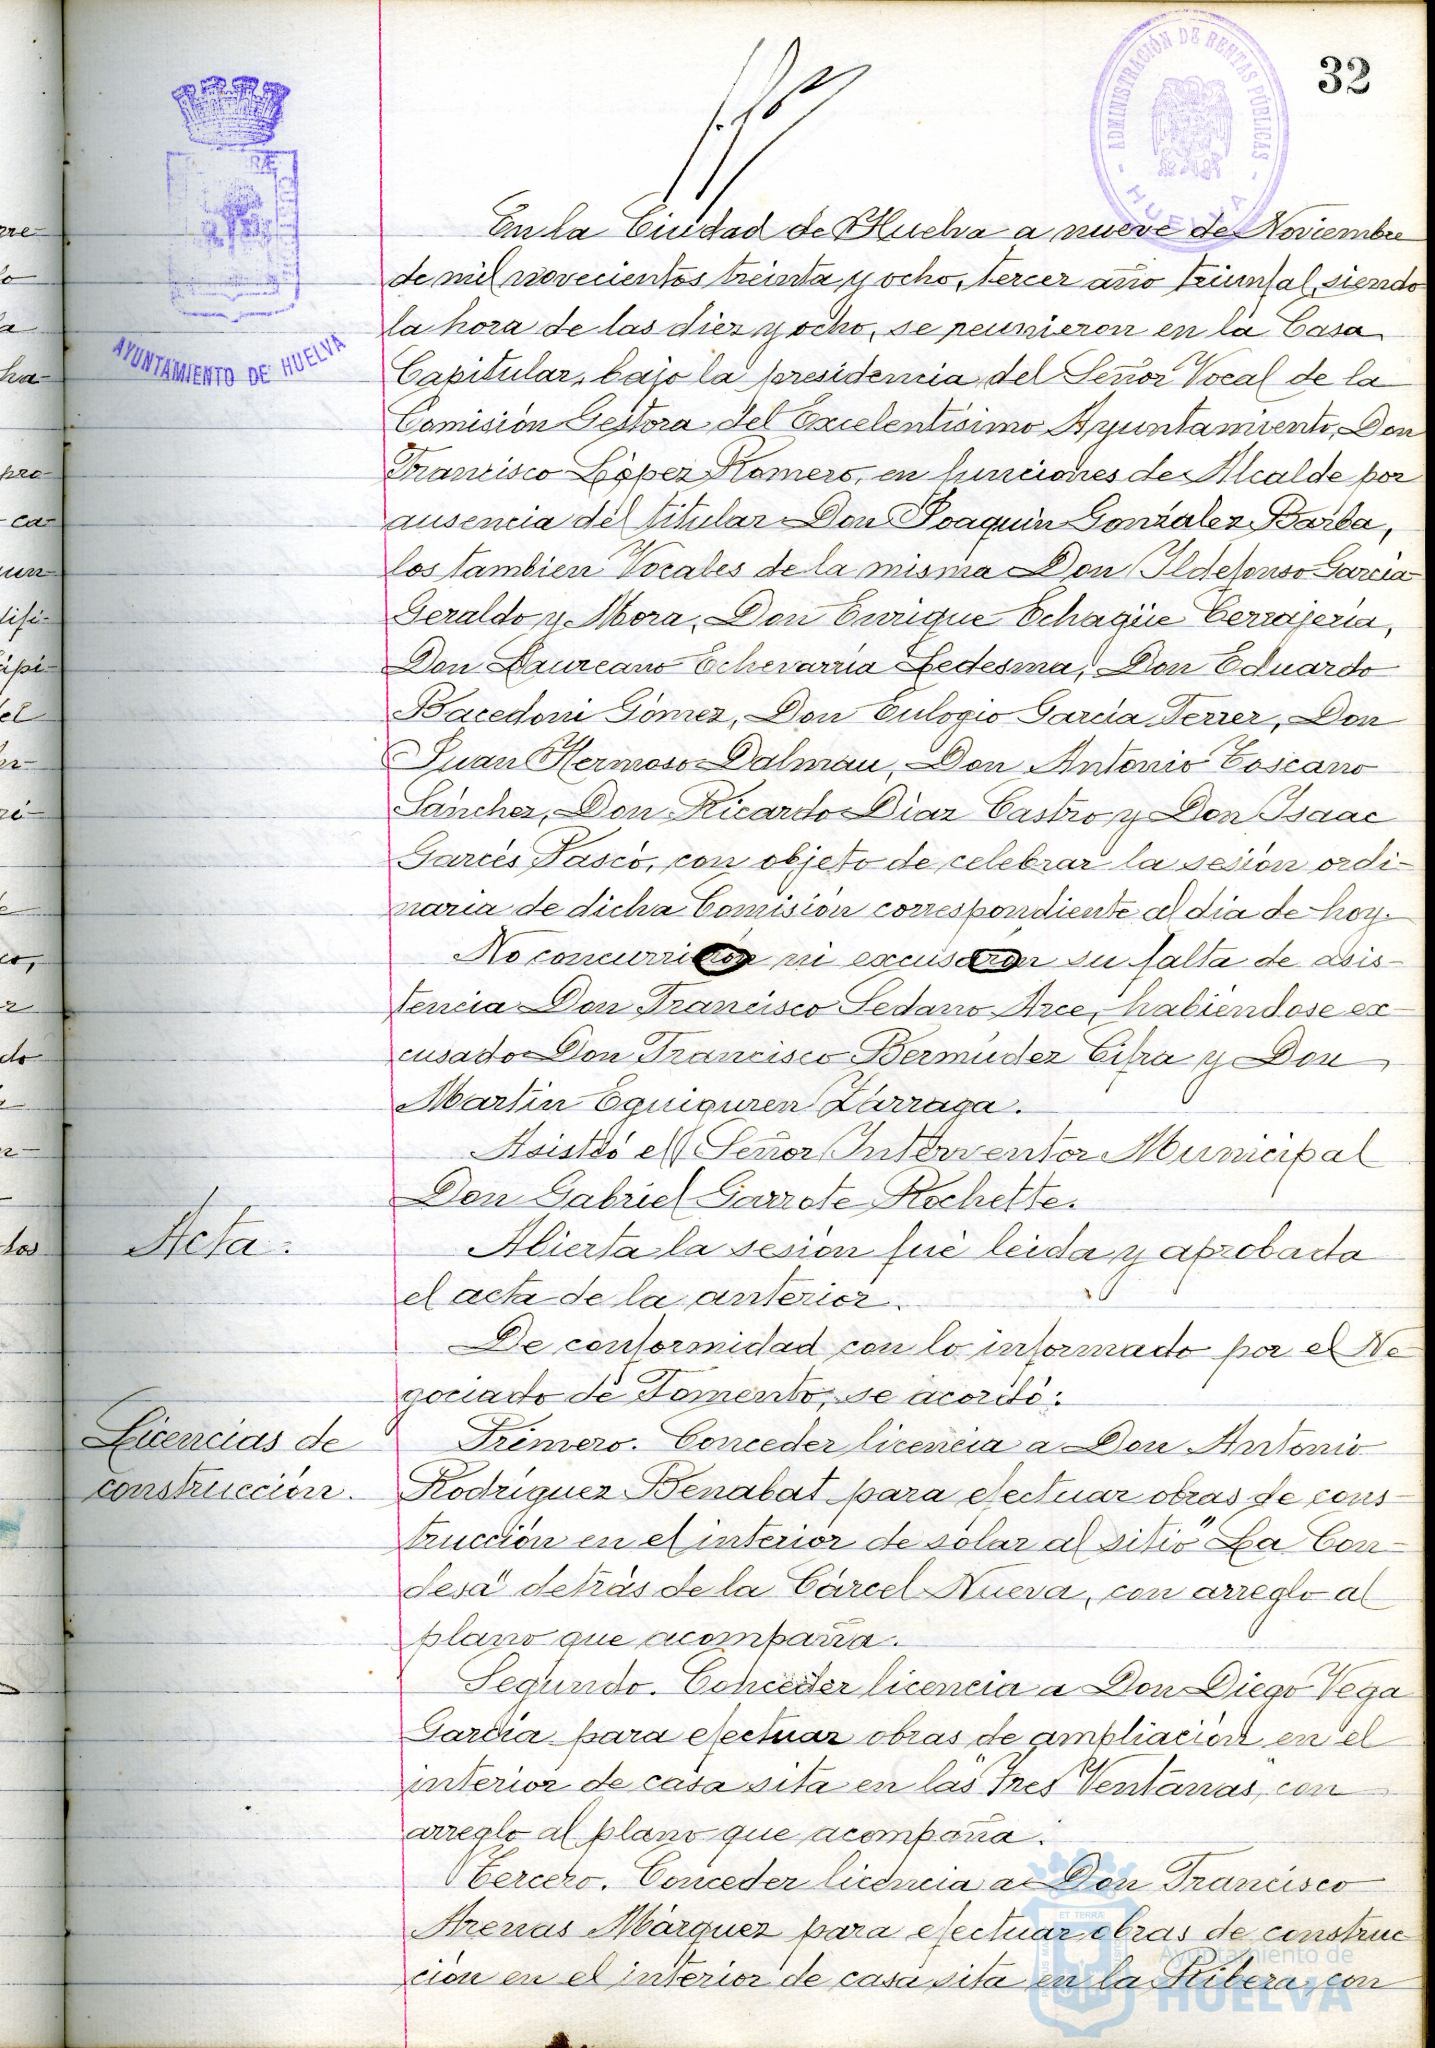 32
ADMINISTRACIÓN DE RENTAS PÚBLICAS
HUELVA
AYUNTAMIENTO DE HUELVA
En la Ciudad de Huelva a nueve de Noviembre
de mil novecientos treinta y ocho, tercer año triunfal, siendo
la hora de las diez y ocho, se reunieron en la Casa
Capitular, bajo la presidencia del Señor Vocal de la
Comisión Gestora del Excelentísimo Ayuntamiento, Don
Francisco López Romero, en funciones de Alcalde por
ausencia del titular Don Joaquín González Barba,
los tambien Vocales de la misma Don Ildefonso García
Geraldo y Mora, Don Enrique Echagüe Cerrajería,
Don Laureano Echevarría Ledesma, Don Eduardo
Bacedoni Gómez, Don Eulogio García Ferrer, Don
Juan Hermoso Dalmau, Don Antonio Toscano
Sánchez, Don Ricardo Díaz Castro y Don Isaac
Garcés Pascó, con objeto de celebrar la sesión ordi-
naria de dicha Comisión correspondiente al día de hoy.
No concurrieron ni excusaron su falta de asis-
tencia Don Francisco Sedano Arce, habiéndose ex-
cusado Don Francisco Bermúdez Cifra y Don
Martín Eguiguren Zárraga.
Asistió el Señor Interventor Municipal
Don Gabriel Garrote Rochette.
Acta.
Abierta la sesión fué leida y aprobada
el acta de la anterior.
De conformidad con lo informado por el Ne-
gociado de Fomento, se acordó:
Licencias de
construcción.
Primero. Conceder licencia a Don Antonio
Rodríguez Benabat para efectuar obras de cons-
trucción en el interior de solar al sitio "La Con-
desa" detrás de la Cárcel Nueva, con arreglo al
plano que acompaña.
Segundo. Conceder licencia a Don Diego Vega
García para efectuar obras de ampliación en el
interior de casa sita en las "Tres Ventanas", con
arreglo al plano que acompaña.
Tercero. Conceder licencia a Don Francisco
Arenas Márquez para efectuar obras de construc-
ción en el interior de casa sita en la Ribera, con
Ayuntamiento de
HUELVA